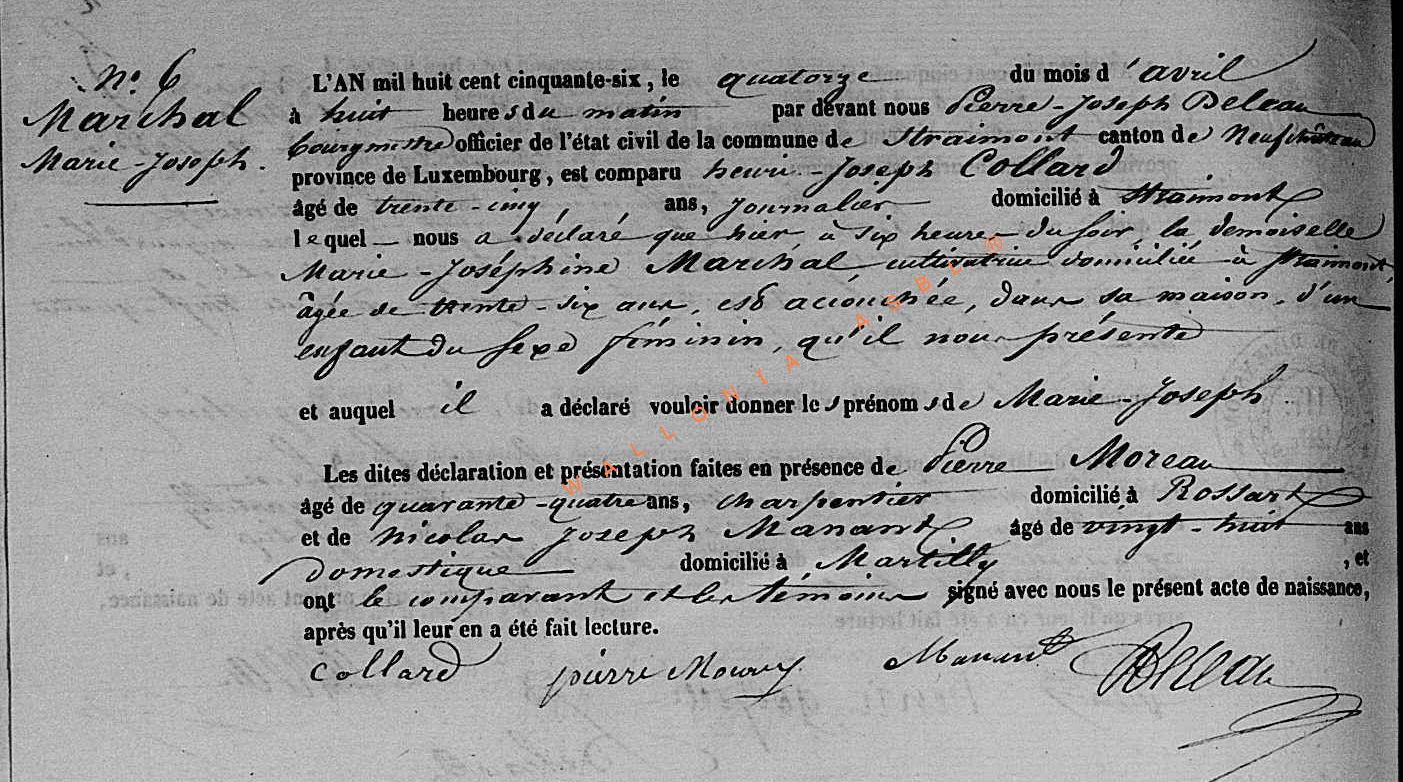 N.º 6
Marchal
Marie-Joseph.
L'AN mil huit cent cinquante-six, le quatorze du mois d'avril
à huit heures du matin par devant nous Pierre-Joseph Deleau
bourgmestre officier de l'état civil de la commune de Straimont canton de Neufchâteau
province de Luxembourg, est comparu henri-Joseph Collard
âgé de trente-cinq, ans, Journalier domicilié à Straimont
lequel nous a déclaré que hier, à six heures du soir, la demoiselle
Marie-Joséphine Marchal, cultivatrice domiciliée à Straimont,
âgée de trente-six ans, est accouchée, dans sa maison, d'un
enfant du sexe féminin, qu'il nous présente
et auquel il a déclaré vouloir donner les prénoms de Marie-Joseph.
Les dites déclaration et présentation faites en présence de Pierre Moreau
âgé de quarante-quatre ans, charpentier domicilié à Rossart
et de Nicolas Joseph Manant âgé de vingt-huit ans
Domestique domicilié à Martilly, et
ont le comparant et les témoins signé avec nous le présent acte de naissance,
après qu'il leur en a été fait lecture.
Collard pierre Manant Deleau
WALLONIA ASBL ®